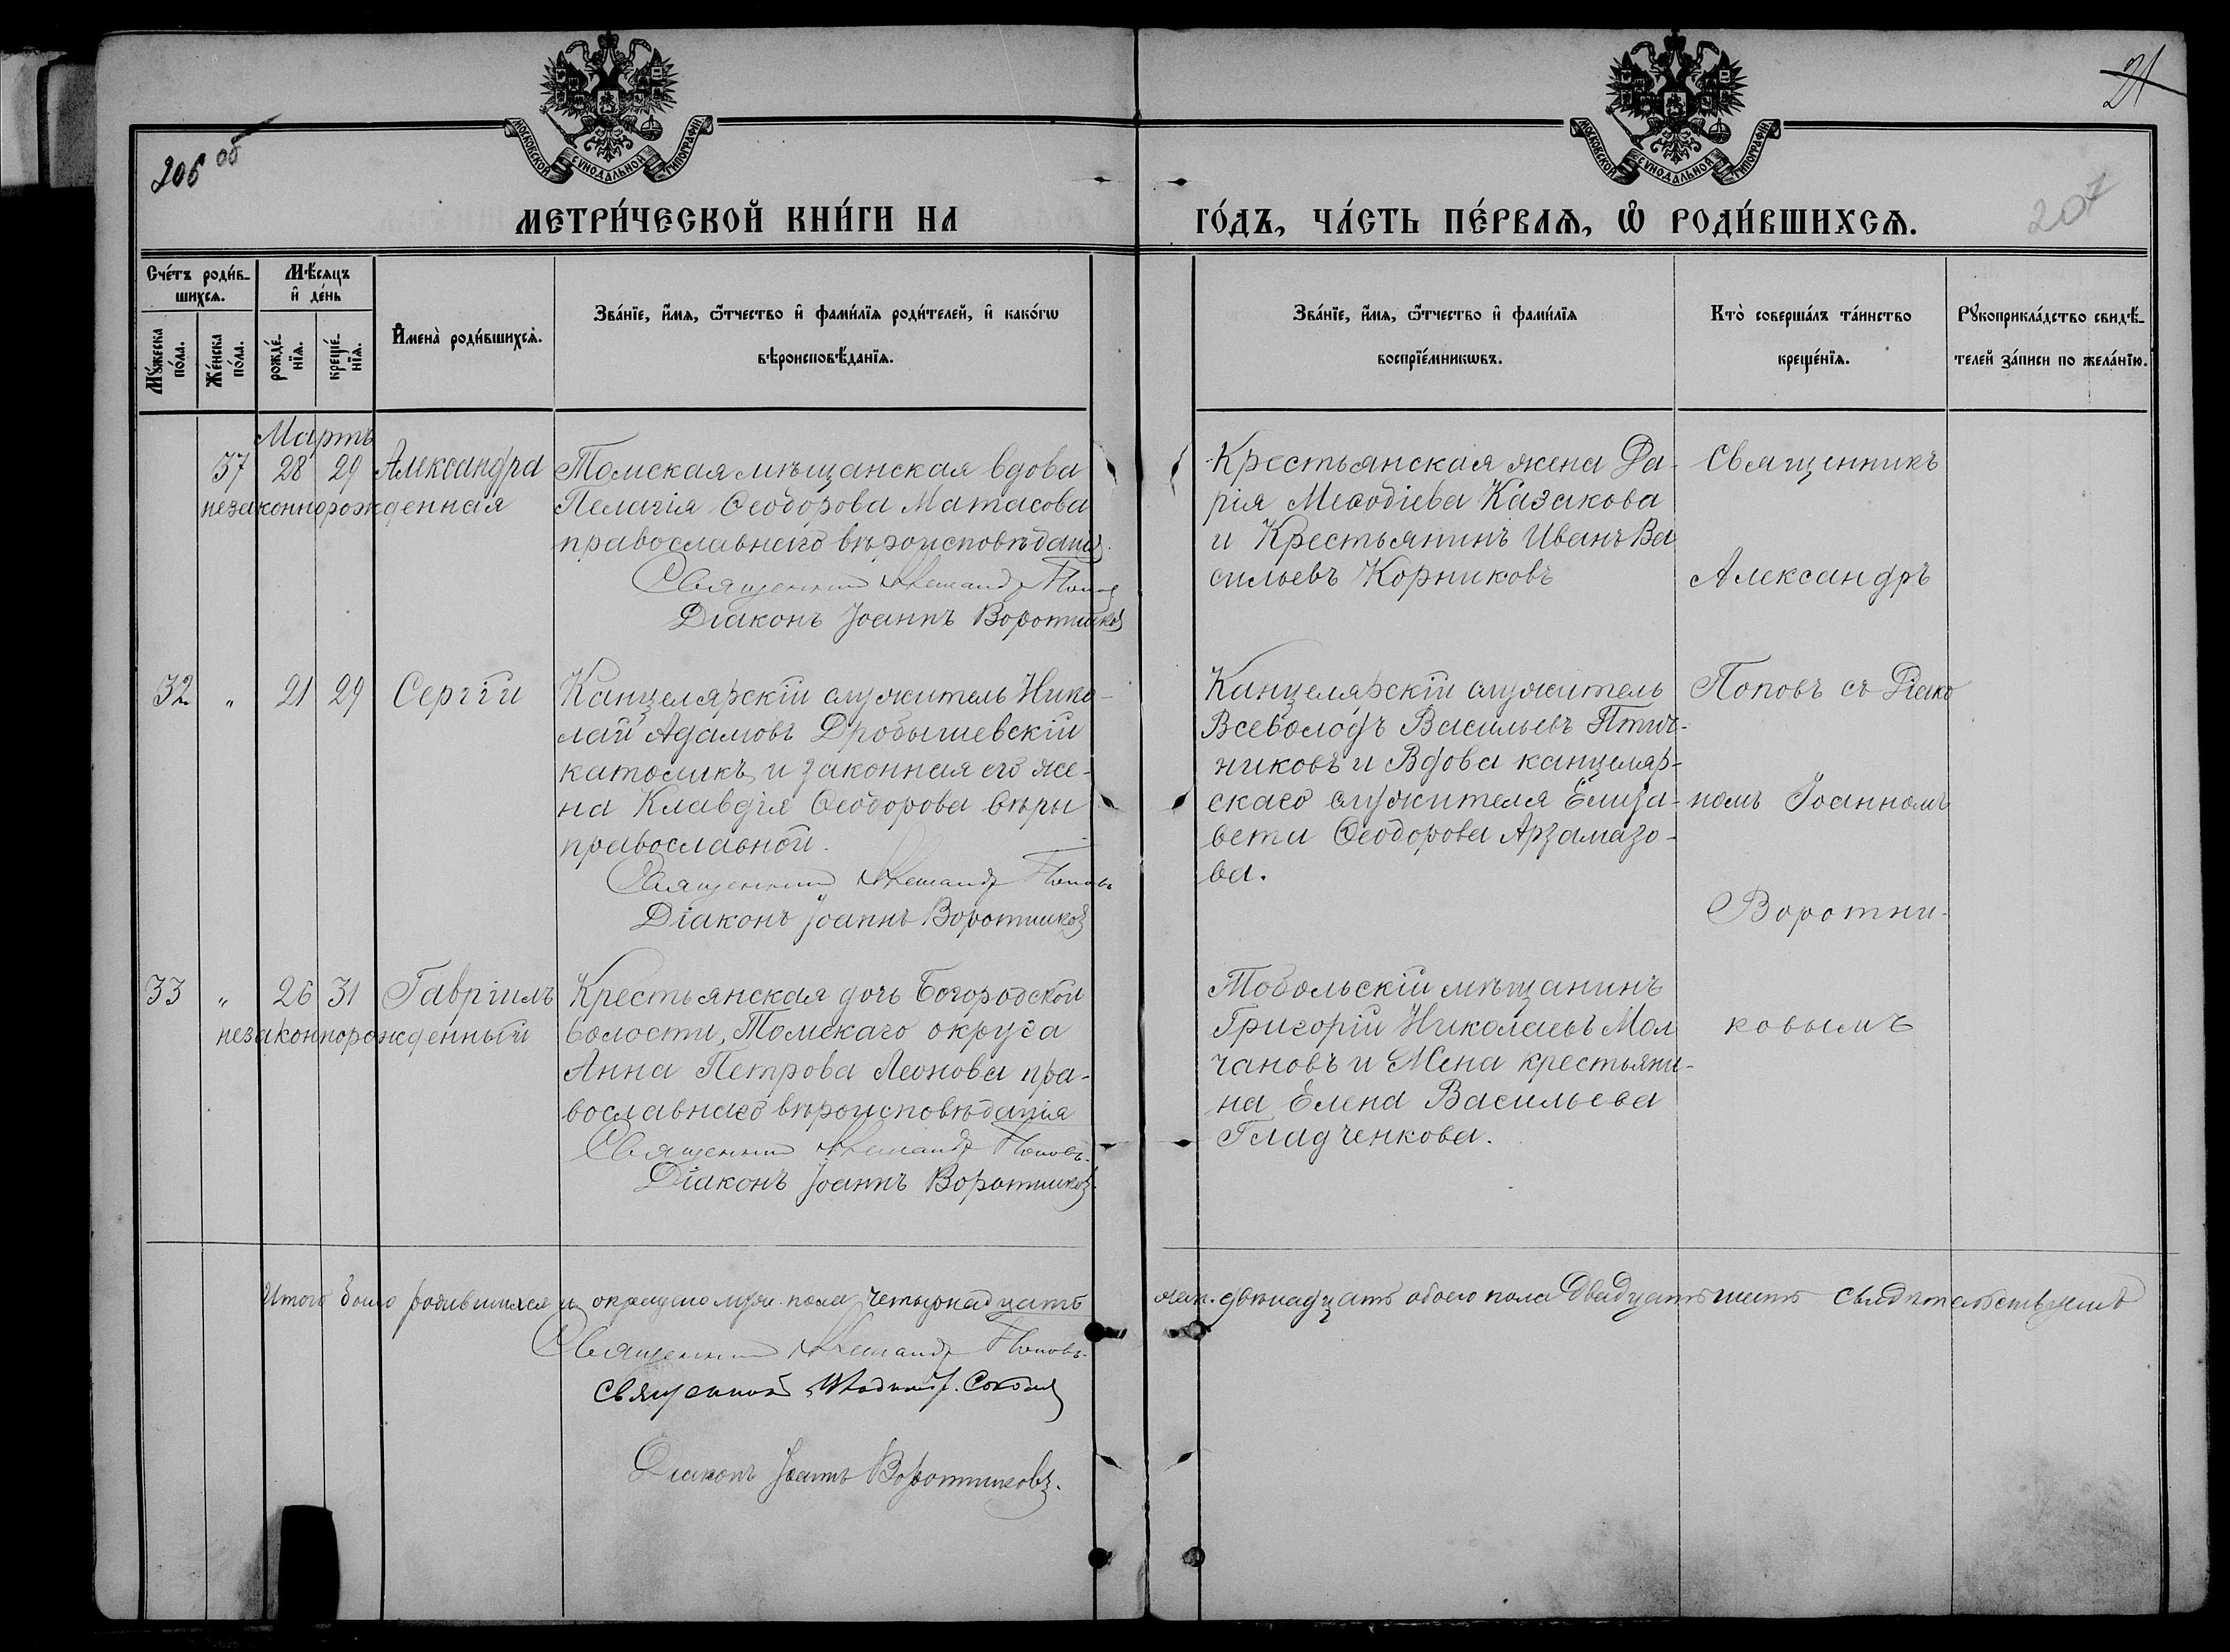 206 об
21
207
МОСКОВСКОЙ СѴНОДАЛЬНОЙ ТИПОГРАФІИ
МОСКОВСКОЙ СѴНОДАЛЬНОЙ ТИПОГРАФІИ
МЕТРИ́ЧЕСКОЙ КНИ́ГИ НА ГО́ДЪ, ЧА́СТЬ ПЕ́РВАѦ, Ѡ҆ РОДИ́ВШИХСѦ.
Сче́тъ роди́в-
шихсѧ.
Мѣ́сѧцъ
и҆ де́нь
Мꙋ́жеска
по́ла.
Же́нска
по́ла.
рожде́-
нїѧ.
креще́-
нїѧ.
И҆мена̀ роди́вшихсѧ.
Зва́нїе, и҆́мѧ, ѻ҆́тчество и҆ фами́лїѧ роди́телей, и҆ како́гѡ
вѣроисповѣ́данїѧ.
Зва́нїе, и҆́мѧ, ѻ҆́тчество и҆ фами́лїѧ
воспрїе́мникѡвъ.
Кто̀ соверша́лъ та́инство
креще́нїѧ.
Рꙋкоприкла́дство свидѣ́-
телей за́писи по жела́нїю.
Мартъ
37 28 29 Александра Томская мѣщанская вдова
незаконнорожденная Пелагія Ѳеодорова Матасова
православнаго вѣроисповѣданія.
Священник Александр Попов
Діаконъ Іоаннъ Воротников
Крестьянская жена Да-
рія Меѳодіева Казакова
и Крестьянинъ Иванъ Ва
сильевъ Корниковъ
Священникъ
Александръ
32 " 21 29 Сергій Канцелярскій служитель Нико-
лай Адамовъ Дробышевскій
католикъ, и законная его же-
на Клавдія Ѳеодорова вѣры
православной.
Священник Александр Поповъ
Діаконъ Іоаннъ Воротников
Канцелярскій служитель
Всеволодъ Васильевъ Птич-
никовъ и Вдова канцеляр-
скаго служителя Елиза-
вета Ѳеодорова Арзамазо-
ва.
Поповъ съ Діако
номъ Іоанномъ
Воротни-
33 " 26 31 Гавріилъ Крестьянская дочь Богородской
незаконнорожденный волости, Томскаго округа
Анна Петрова Леонова пра-
вославнаго вѣроисповѣданія
Священник Александр Поповъ.
Діаконъ Іоаннъ Воротников
Тобольскій мѣщанинъ
Григорій Николаевъ Мол
чановъ и Жена крестьяни-
на Елена Васильева
Гладченкова.
ковымъ
Итого было родившихся и окрещено муж. пола четырнадцать
жен. двѣнадцать обоего пола двадцать шесть свидѣтельствуемъ
Священник Александр Поповъ.
Священник
Діаконъ Іоаннъ Воротниковъ.